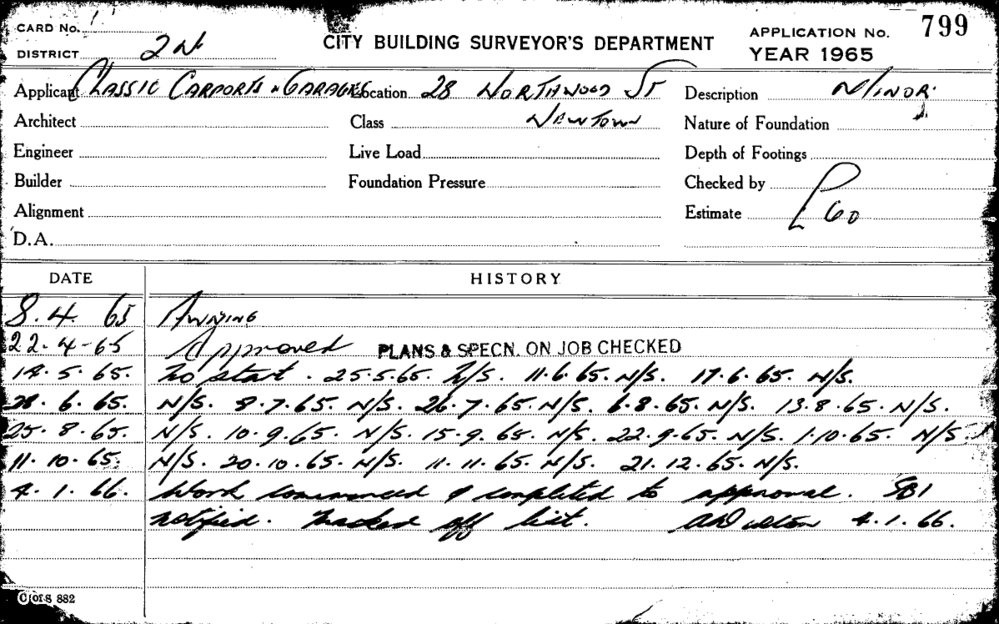 CARD No. 1
DISTRICT 2N
CITY BUILDING SURVEYOR'S DEPARTMENT
APPLICATION No. 799
YEAR 1965
Applicant CLASSIC CARPORTS & GARAGES Location 28 NORTHWOOD ST Description MINOR.
Architect Class NEWTOWN Nature of Foundation
Engineer Live Load Depth of Footings
Builder Foundation Pressure Checked by
Alignment Estimate £60
D.A.
DATE HISTORY
8.4.65 AWNING
22-4-65 Approved PLANS & SPECN. ON JOB CHECKED
14.5.65. No start. 25.5.65. N/S. 11.6.65. N/S. 17.6.65. N/S.
28.6.65. N/S. 8.7.65. N/S. 26.7.65. N/S. 6.8.65. N/S. 13.8.65. N/S.
25.8.65. N/S. 10.9.65. N/S. 15.9.65. N/S. 22.9.65. N/S. 1.10.65. N/S.
11.10.65. N/S. 20.10.65. N/S. 11.11.65. N/S. 21.12.65. N/S.
4.1.66. Work commenced & completed to approval. SBI
notified. Marked off list. 4.1.66.
C of S 882